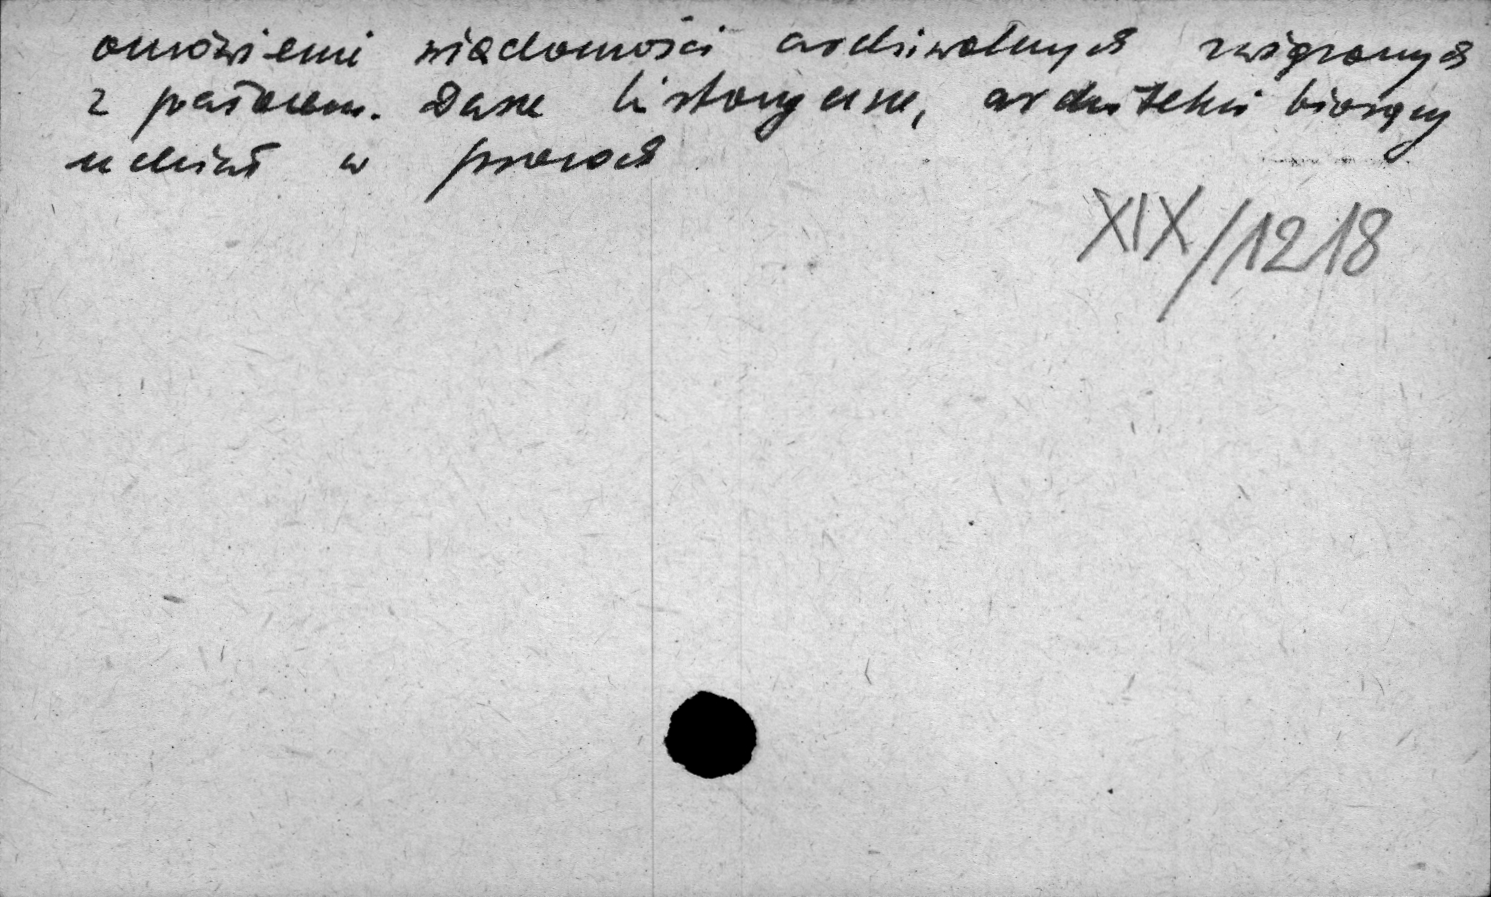 omówienie wiadomości archiwalnych związanych
z pałacem. Dane historyczne, architekci biorący
udział w pracach
XIX/1218